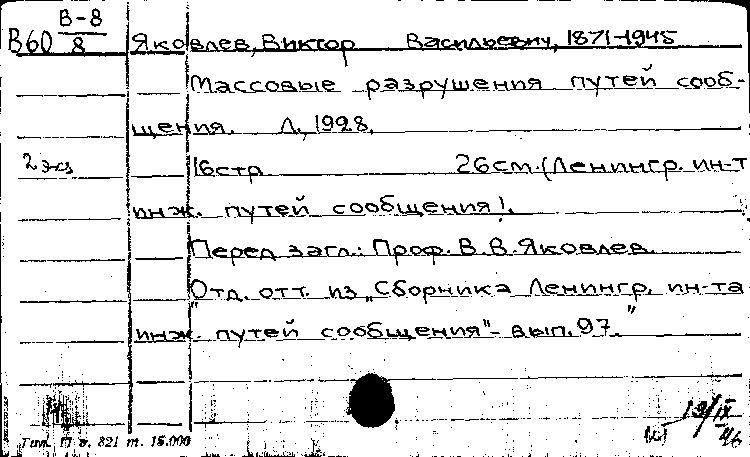 В-8
В60 8 Яковлев, Виктор Васильевич, 1871-1945
Массовые разрушения путей сооб-
щения. Л., 1928.
2 экз 16стр 26см. (Ленингр. ин-т
инж. путей сообщения).
Перед загл.: Проф. В. В. Яковлев.
"Отд. отт. из „Сборника Ленингр. ин-та
инж. путей сообщения"- вып. 97."
19/IX
46
Тип. з. 821 т. 15.000